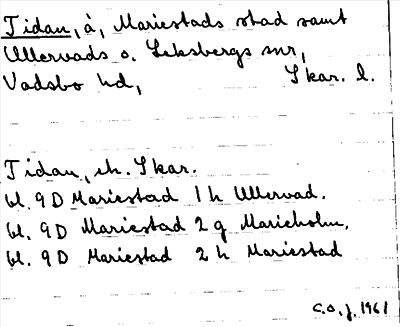 Tidan, å, Mariestads stad samt
Ullervads o. Leksbergs snr,
Vadsbo hd, Skar. l.
Tidan, ek. Skar.
bl. 9D Mariestad 1h Ullervad.
bl. 9D Mariestad 2g Marieholm,
bl. 9D Mariestad 2h Mariestad
C.O.J. 1961